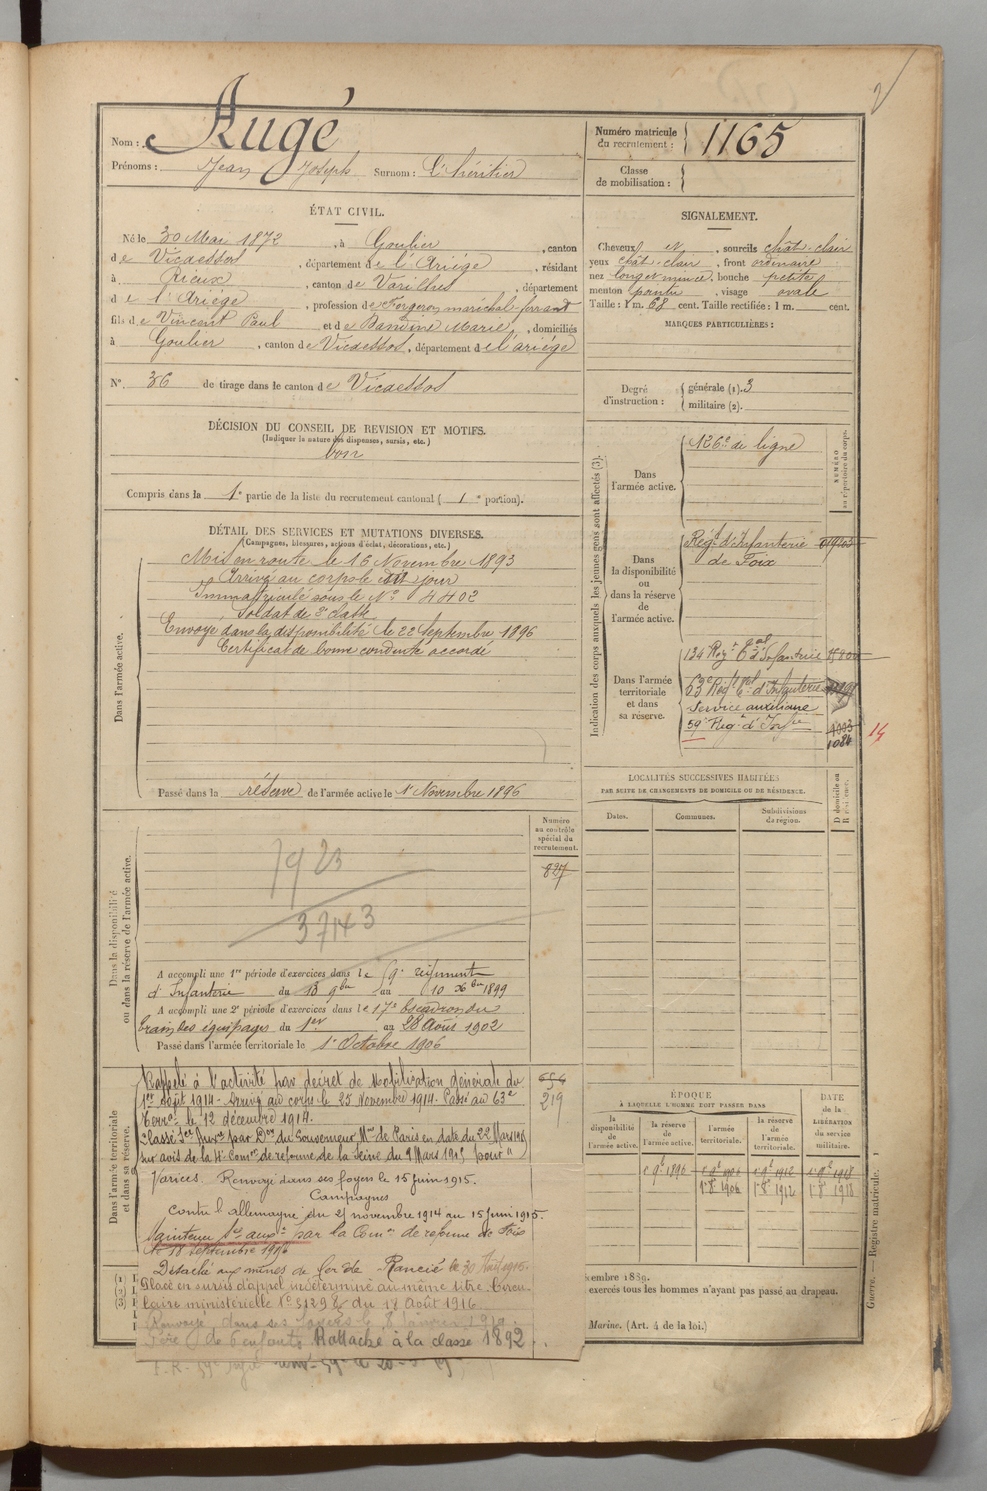 2
Nom : Augé
Prénoms : Jean Joseph Surnom : L'héritier
Numéro matricule du recrutement : 1165
Classe de mobilisation :
ÉTAT CIVIL.
Né le 30 Mai 1872, à Goulier, canton
de Vicdessos, département de l'Ariège, résidant
à Rieux, canton de Varilhes, département
de l'Ariège, profession de Forgeron maréchal-ferrant
fils de Vincent Paul et de Bandine Marie, domiciliés
à Goulier, canton de Vicdessos, département de l'ariège
SIGNALEMENT.
Cheveux et, sourcils chât-clair
yeux chât-clair, front ordinaire
nez long et mince, bouche petite
menton pointu, visage ovale
Taille : 1 m. 68 cent. Taille rectifiée : 1 m. cent.
MARQUES PARTICULIÈRES :
N° 36 de tirage dans le canton de Vicdessos
Degré d'instruction : générale (1). 3
militaire (2).
DÉCISION DU CONSEIL DE REVISION ET MOTIFS.
(Indiquer la nature des dispenses, sursis, etc.)
bon
Compris dans la 1e partie de la liste du recrutement cantonal ( 1e portion).
DÉTAIL DES SERVICES ET MUTATIONS DIVERSES.
(Campagnes, blessures, actions d'éclat, décorations, etc.)
Dans l'armée active.
Mis en route le 16 Novembre 1893
Arrivé au corps le dit jour
Immatriculé sous le N° 4402
Soldat de 2e classe
Envoyé dans la disponibilité le 22 Septembre 1896
Certificat de bonne conduite accordé
Passé dans la réserve de l'armée active le 1r Novembre 1896
Indication des corps auxquels les jeunes gens sont affectés (3).
NUMÉRO au répertoire du corps.
Dans l'armée active.
126e de ligne
Dans la disponibilité ou dans la réserve de l'armée active.
Régt d'Infanterie
de Foix
Dans l'armée territoriale et dans sa réserve.
134 Regt tal d'Infanterie
63e Régt tal d'Infanterie
Service auxiliaire
59e Regt d'Infie
1003
1084
14
LOCALITÉS SUCCESSIVES HABITÉES
PAR SUITE DE CHANGEMENTS DE DOMICILE OU DE RÉSIDENCE.
Dates.
Communes.
Subdivisions de région.
D domicile ou R résidence.
Dans la disponibilité ou dans la réserve de l'armée active.
Numéro au contrôle spécial du recrutement.
827
7923
37143
A accompli une 1re période d'exercices dans le 59e régiment
d'Infanterie du 13 9bre au 10 Xbre 1899
A accompli une 2e période d'exercices dans le 17e Escadron du
train des équipages du 1er au 28 Août 1902
Passé dans l'armée territoriale le 1r Octobre 1906
Dans l'armée territoriale et dans sa réserve.
219
Rappelé à l'activité par décret de Mobilisation Générale du
1er Août 1914. Arrivé au corps le 25 Novembre 1914. Passé au 63e
Terral le 12 décembre 1914.
Classé Ser Auxre par Don du Gouverneur Mre de Paris en date du 22 Mars 1915
sur avis de la 4e Comon de réforme de la Seine du 9 Mars 1915 pour "
Varices. Renvoyé dans ses foyers le 15 juin 1915.
Campagnes
contre l'allemagne du 25 novembre 1914 au 15 juin 1915.
Maintenu Sce auxre par la Comon de réforme de Foix
le 18 septembre 1916
Détaché aux mines de fer de Rancié le 30 Août 1915.
Placé en sursis d'appel indéterminé au même titre. Circu-
laire ministérielle N° 5129 du 18 Août 1916
Renvoyé dans ses foyers le 8 Janvier
Père de 6 enfants. Rattaché à la classe 1892.
ÉPOQUE
À LAQUELLE L'HOMME DOIT PASSER DANS
la disponibilité de l'armée active.
la réserve de l'armée active.
l'armée territoriale.
la réserve de l'armée territoriale.
DATE de la LIBÉRATION du service militaire.
1r 9bre 1896
1r 8bre 1906
1r 8bre 1912
1r 8bre 1918
cembre 1889.
exercés tous les hommes n'ayant pas passé au drapeau.
Marine. (Art. 4 de la loi.)
Guerre. — Registre matricule. 1